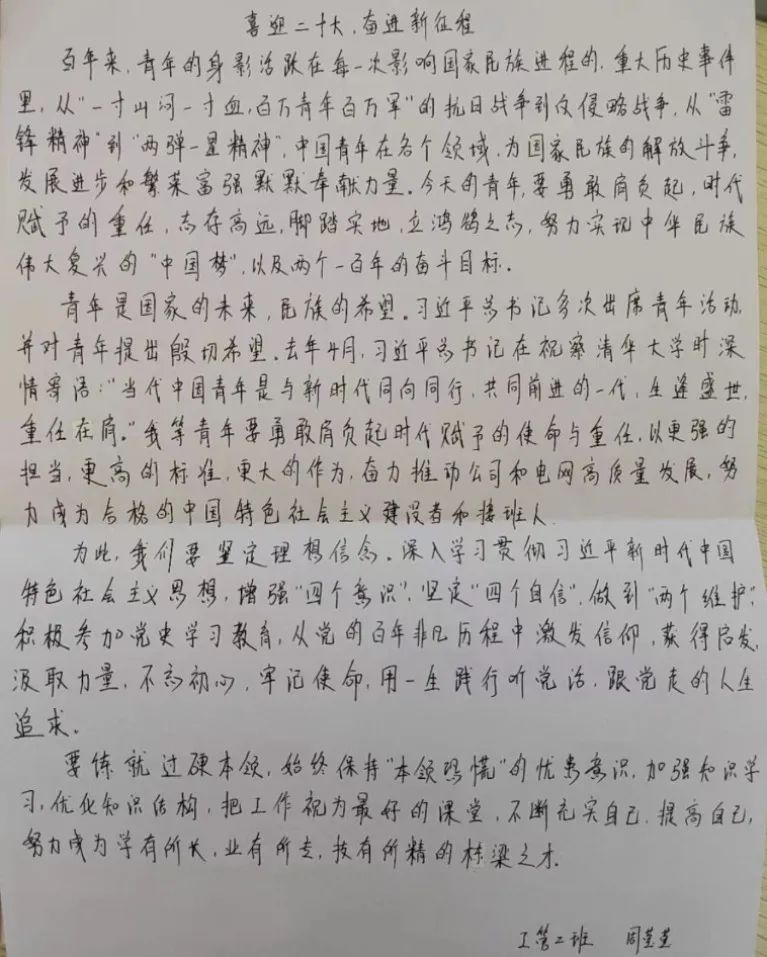 喜迎二十大,奋进新征程
百年来,青年的身影活跃在每一次影响国家民族进程的,重大历史事件
里,从"一寸山河一寸血,百万青年百万军"的抗日战争到反侵略战争,从"雷
锋精神"到"两弹一星精神",中国青年在各个领域,为国家民族的解放斗争,
发展进步和繁荣富强默默奉献力量。今天的青年,要勇敢肩负起,时代
赋予的重任,志存高远,脚踏实地,立鸿鹄之志,努力实现中华民族
伟大复兴的"中国梦",以及两个一百年的奋斗目标。
青年是国家的未来,民族的希望。习近平总书记多次出席青年活动,
并对青年提出殷切希望。去年4月,习近平总书记在视察清华大学时深
情寄语:"当代中国青年是与新时代同向同行,共同前进的一代,生逢盛世,
重任在肩。"我等青年要勇敢肩负起时代赋予的使命与重任,以更强的
担当,更高的标准,更大的作为,奋力推动公司和电网高质量发展,努
力成为合格的中国特色社会主义建设者和接班人。
为此,我们要坚定理想信念。深入学习贯彻习近平新时代中国
特色社会主义思想,增强"四个意识",坚定"四个自信",做到"两个维护",
积极参加党史学习教育,从党的百年非凡历程中激发信仰,获得启发,
汲取力量,不忘初心,牢记使命,用一生践行听党话,跟党走的人生
追求。
要练就过硬本领,始终保持"本领恐慌"的忧患意识,加强知识学
习,优化知识结构,把工作视为最好的课堂,不断充实自己,提高自己,
努力成为学有所长,业有所专,技有所精的栋梁之才。
工管二班 周莹莹